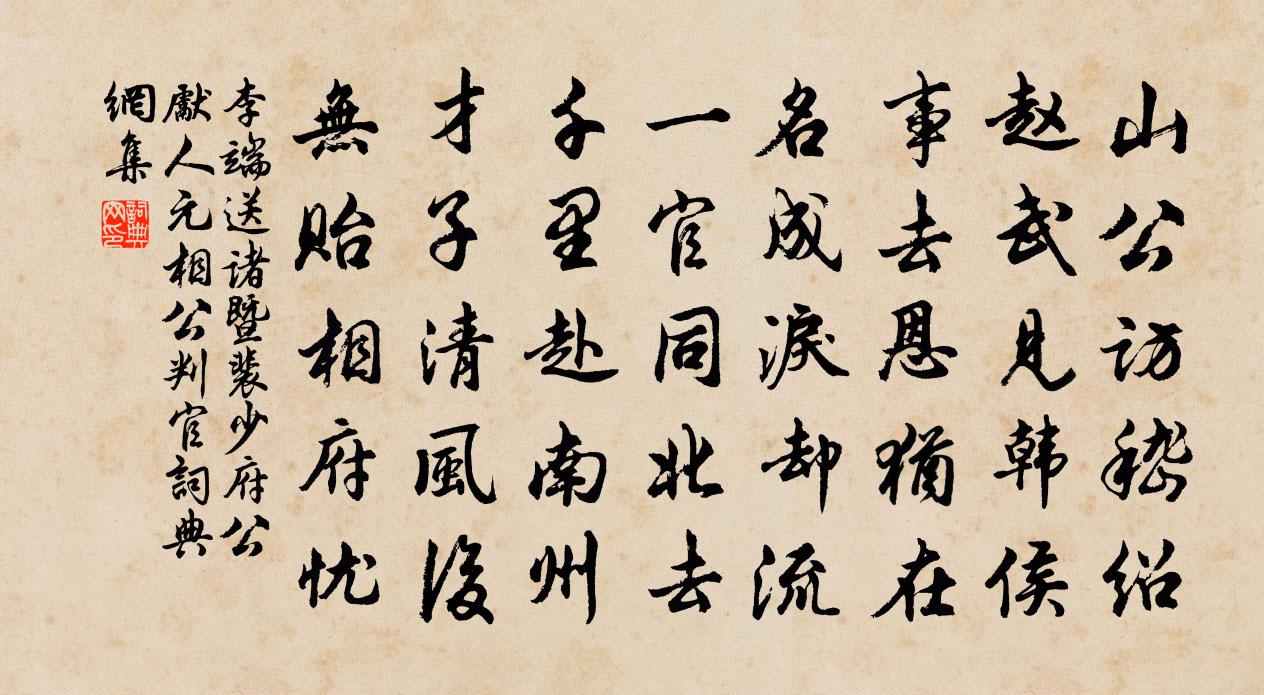 山公访嵇绍
赵武见韩侯
事去恩犹在
名成淚却流
一官同北去
千里赴南州
才子清風後
無贻相府忧
李端送诸暨裴少府公
獻人元相公判官詞典
網集
詞典網印